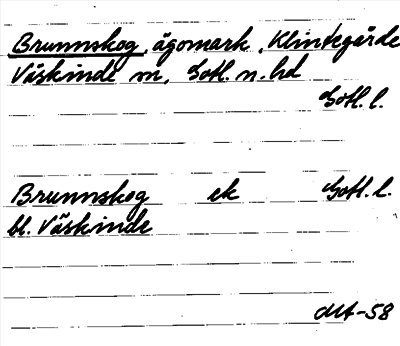 Brunnskog, ägomark, Klintegårde
Väskinde sn, Gotl. n. hd
Gotl. l.
Brunnskog ek Gotl. l.
bl. Väskinde